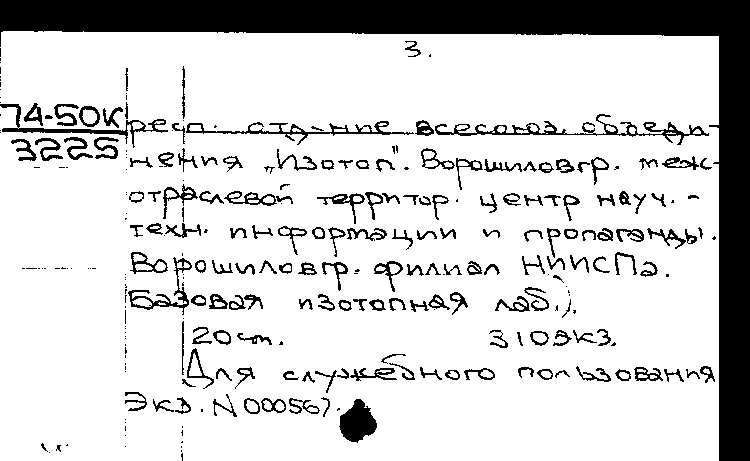 3.
74-50К
3225
респ. отд-ние всесоюз. объеди-
нения „Изотоп". Ворошиловгр. меж-
отраслевой территор. центр науч.-
техн. информации и пропаганды.
Ворошиловгр. филиал НИИСПа.
Базовая изотопная лаб.).
20 см. 310 экз.
Для служебного пользования
Экз. N 000567.